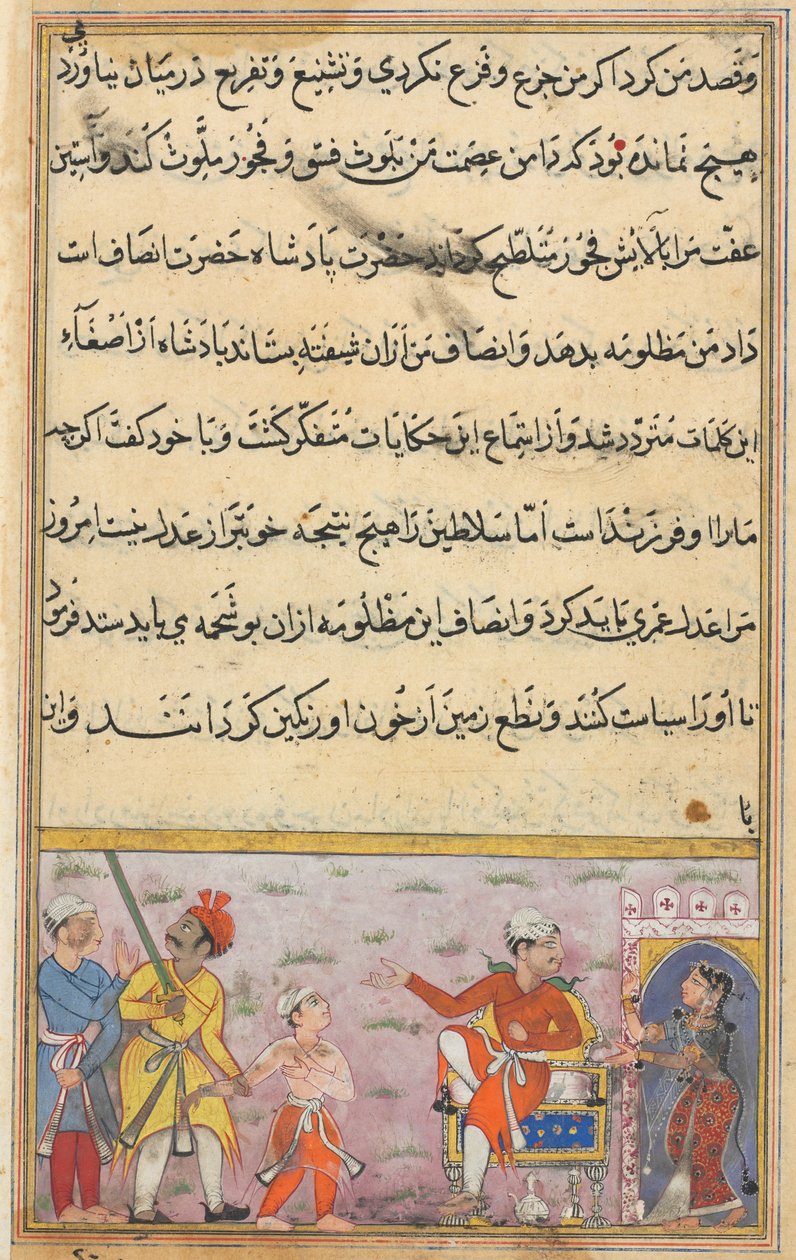 وقصد من كرد اكر من جزع وفزع نكردي وتشنيع وتفريع درميان نياورد
هيچ نمانده بود كه دامن عصمت من بلوث فسق وفجور ملوث كند وآستين
عفت مرا بآلايش فجور متلطخ كرداند حضرت پادشاه حضرت انصاف است
داد من مظلومه بدهد وانصاف من ازان شيفته بستاند پادشاه از اصغاء
اين كلمات متردد شد و از استماع اين حكايات متفكر كشت وبا خود كفت اكر چه
مارا او فرزند است اما سلاطين را هيچ نتيجه خوبتر از عدل نيست امروز
مرا عدل عمري بايد كرد وانصاف اين مظلومه ازان بوشحمه مي بايد ستد فرمود
تا او را سياست كنند ونطع زمين از خون او رنكين كردانند واين
با